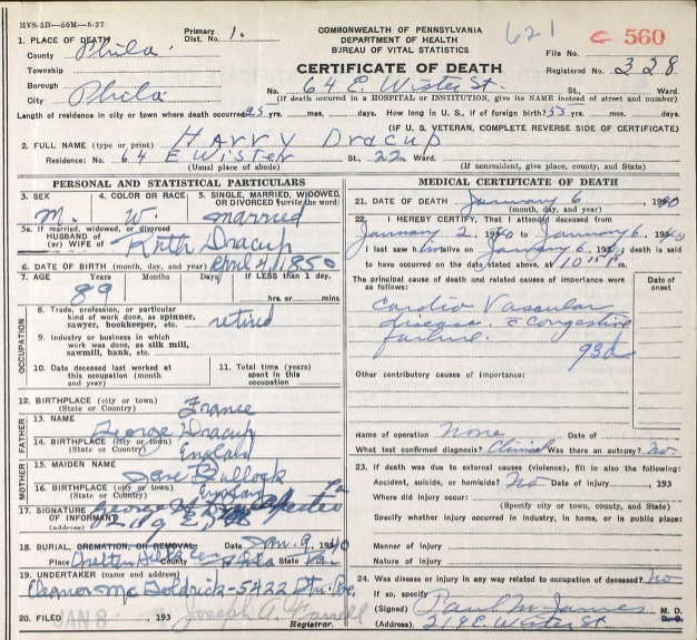 HVS-2D-50M-5-27
COMMONWEALTH OF PENNSYLVANIA
DEPARTMENT OF HEALTH
BUREAU OF VITAL STATISTICS
CERTIFICATE OF DEATH
621
560
1. PLACE OF DEATH
Primary Dist. No. 1.
File No.
County Phila.
Registered No. 328
Township
Borough
No. 64 E. Wister St. St., Ward.
City Phila
(If death occurred in a HOSPITAL or INSTITUTION, give its NAME instead of street and number)
Length of residence in city or town where death occurred yrs. mos. days. How long in U. S., if of foreign birth? yrs. mos. days.
(IF U. S. VETERAN, COMPLETE REVERSE SIDE OF CERTIFICATE)
2. FULL NAME (type or print) Harry Dracup
Residence: No. 64 E Wister St., 22 Ward.
(Usual place of abode) (If nonresident, give place, county, and State)
PERSONAL AND STATISTICAL PARTICULARS
3. SEX M. 4. COLOR OR RACE W. 5. SINGLE, MARRIED, WIDOWED, OR DIVORCED (write the word) married
5a. If married, widowed, or divorced
HUSBAND of
(or) WIFE of Ruth Dracup
6. DATE OF BIRTH (month, day, and year) April 4, 1850
7. AGE Years Months Days If LESS than 1 day,
89 hrs. or mins
OCCUPATION
8. Trade, profession, or particular kind of work done, as spinner, sawyer, bookkeeper, etc. retired
9. Industry or business in which work was done, as silk mill, sawmill, bank, etc.
10. Date deceased last worked at this occupation (month and year)
11. Total time (years) spent in this occupation
12. BIRTHPLACE (city or town) France
(State or Country)
FATHER
13. NAME George Dracup
14. BIRTHPLACE (city or town) England
(State or Country)
MOTHER
15. MAIDEN NAME Jane Bullock
16. BIRTHPLACE (city or town) England
(State or Country)
17. SIGNATURE OF INFORMANT George
(address)
18. BURIAL, CREMATION, OR REMOVAL Date Jan. 9, 1940
Place Chelten Hills Cem Phila State Pa.
19. UNDERTAKER (name and address)
Eleanor Mc Goldrick-5422
20. FILED JAN 8 , 193 Joseph A. Farrell
Registrar.
MEDICAL CERTIFICATE OF DEATH
21. DATE OF DEATH January 6, 1940
(month, day, and year)
22. I HEREBY CERTIFY, That I attended deceased from
January 2, 1940 to January 6, 1940
I last saw him alive on January 6, 1940, death is said
to have occurred on the date stated above, at 10 15 P m.
The principal cause of death and related causes of importance were as follows:
Date of onset
Cardio Vascular
disease. c Congestive
failure.
93d
Other contributory causes of importance:
Name of operation None Date of
What test confirmed diagnosis? Clinical Was there an autopsy? No.
23. If death was due to external causes (violence), fill in also the following:
Accident, suicide, or homicide? No Date of injury , 193
Where did injury occur:
(Specify city or town, county, and State)
Specify whether injury occurred in industry, in home, or in public place:
Manner of injury
Nature of injury
24. Was disease or injury in any way related to occupation of deceased? No
If so, specify
(Signed) Paul M James M. D.
(Address) 218 E. Wister St